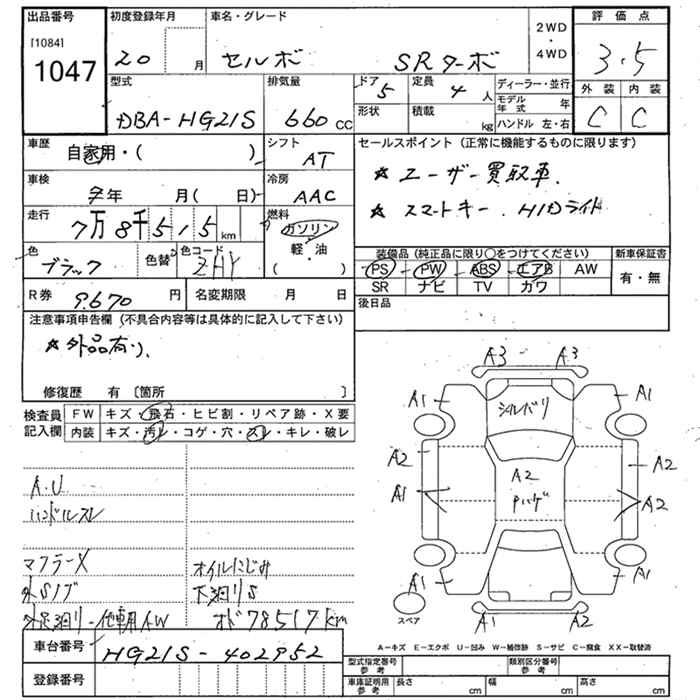 出品番号 初度登録年月 車名・グレード 2WD・4WD 評価点
[1084]
1047 20 月 セルボ SRターボ 3.5
型式 排気量 ドア 5 定員 4人 ディーラー・並行 外装 内装
DBA-HG21S 660 CC 形状 積載 kg モデル年式 年 C C
ハンドル 左・右
車歴 自家用・( ) シフト AT セールスポイント(正常に機能するものに限ります)
車検 年 月( 日) 冷房 AAC ★ユーザー買取車.
走行 7万8千515km 燃料 ガソリン ★スマートキー. HIDライト
軽・油
( )
色 ブラック 色替 色コード ZHY 装備品(純正品に限り○をつけてください) 新車保証書
PS PW ABS エアB AW 有・無
SR ナビ TV カワ
R券 9,670円 名変期限 月 日 後日品
注意事項申告欄(不具合内容等は具体的に記入して下さい)
★外品有り、
修復歴 有〔箇所 〕
検査員記入欄 FW キズ・飛石・ヒビ割・リペア跡・X要
内装 キズ・汚レ・コゲ・穴・スレ・キレ・破レ
A3 A3
A1 シルバリ A1
A2 A2
A1 A2
A2 Pハゲ
A1 A1
A1 A2
スペア
A.U
ハンドルスレ
マフラーX オイルにじみ
外Sノブ 下廻りS
外足廻り-他車用AW オド78517km
A-キズ E-エクボ U-凹み W-補修跡 S-サビ C-腐食 XX-取替済
車台番号 HG21S-402952
型式指定番号 参考 類別区分番号 参考
登録番号 車庫証明用 参考 長さ cm 幅 cm 高さ cm